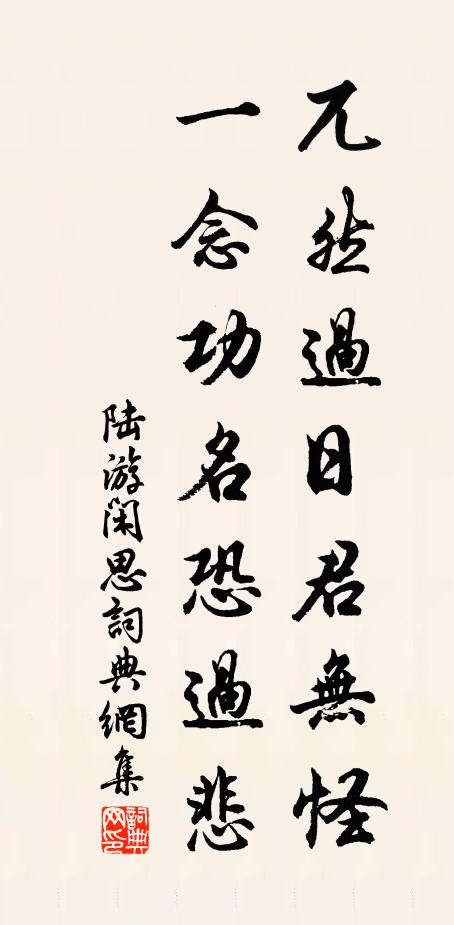 兀然過日君無怪
一念功名恐過悲
陆游閑思詞典網集
詞典网印